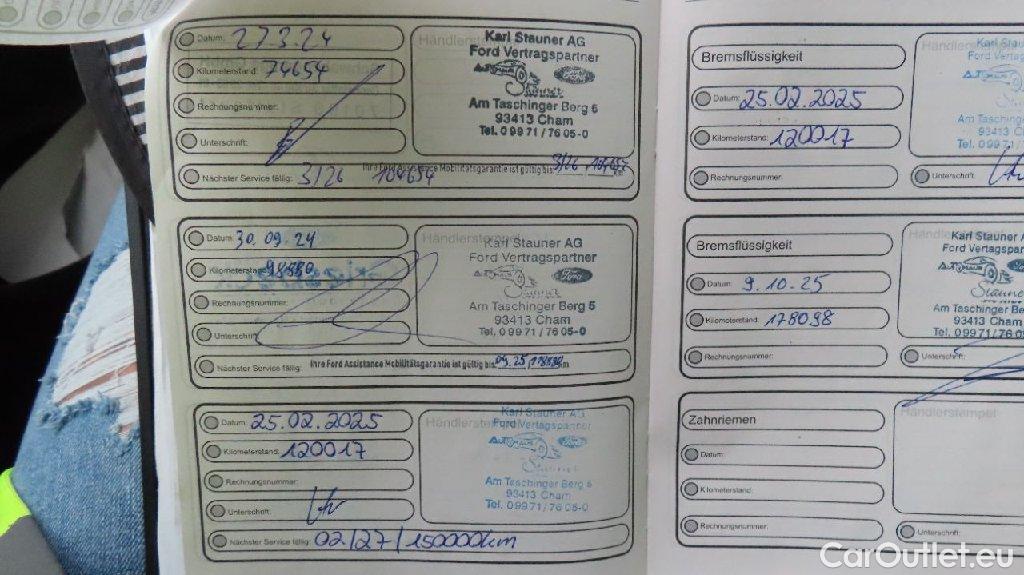 Datum: 27.3.24
Kilometerstand: 74654
Rechnungsnummer:
Unterschrift:
Nächster Service fällig: 3/26 104654
Ihre Ford Assistance Mobilitätsgarantie ist gültig bis: 3/26 104654 km
Händlerstempel
Karl Stauner AG
Ford Vertragspartner
AUTOHAUS Stauner
Ford
Am Taschinger Berg 6
93413 Cham
Tel. 0 99 71 / 76 05-0
Datum: 30.09.24
Kilometerstand: 98880
Rechnungsnummer:
Unterschrift:
Nächster Service fällig:
Ihre Ford Assistance Mobilitätsgarantie ist gültig bis: 09.25 / 118880 km
Händlerstempel
Karl Stauner AG
Ford Vertragspartner
AUTOHAUS Stauner
Ford
Am Taschinger Berg 6
93413 Cham
Tel. 0 99 71 / 76 05-0
Datum: 25.02.2025
Kilometerstand: 120017
Rechnungsnummer:
Unterschrift:
Nächster Service fällig: 02/27/150000km
Händlerstempel
Karl Stauner AG
Ford Vertragspartner
AUTOHAUS Stauner
Am Taschinger Berg 6
93413 Cham
Tel. 0 99 71 / 76 05-0
Bremsflüssigkeit
Datum: 25.02.2025
Kilometerstand: 120017
Rechnungsnummer:
Unterschrift:
Händlerstempel
Karl Stau
Ford Vertrags
Am Tasching
93413 C
Tel. 0 99 71 /
Bremsflüssigkeit
Datum: 9.10.25
Kilometerstand: 178098
Rechnungsnummer:
Unterschrift:
Händlerstempel
Karl Stauner
Ford Vertragsp
AUTOHAUS Stauner
Am Taschinger Be
93413 Cham
Tel. 0 99 71 / 76 0
Zahnriemen
Datum:
Kilometerstand:
Rechnungsnummer:
Händlerstempel
Unterschrift:
CarOutlet.eu